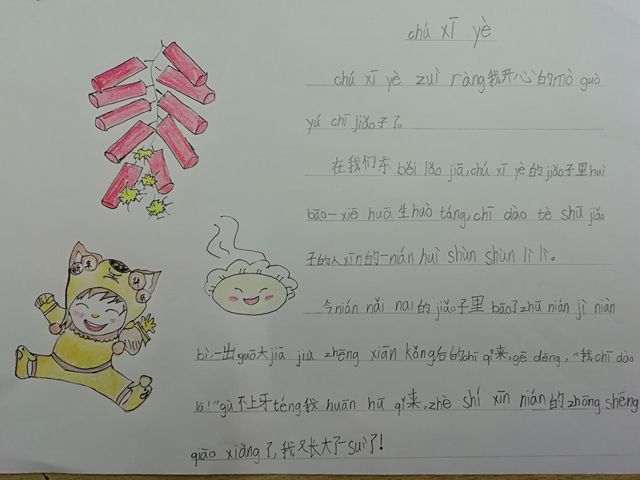 chú xī yè
chú xī yè zuì ràng我开心的mò guò
yú chī jiǎo子了。
在我们东běi lǎo jiā,chú xī yè的jiǎo子里huì
bāo一xiē huā生huò táng,chī dào tè shū jiǎo
子的人xīn的一nián huì shùn shùn lì lì。
今nián nǎi nai的jiǎo子里bāo了zhū nián jì niàn
bì,一出guō大jiā jiù zhēng xiān kǒng后的chī qǐ来,gē dēng,“我chī dào
là!”gù不上牙téng我huān hū qǐ来,zhè shí xīn nián的zhōng shēng
qiāo xiǎng了,我又长大了一suì了!